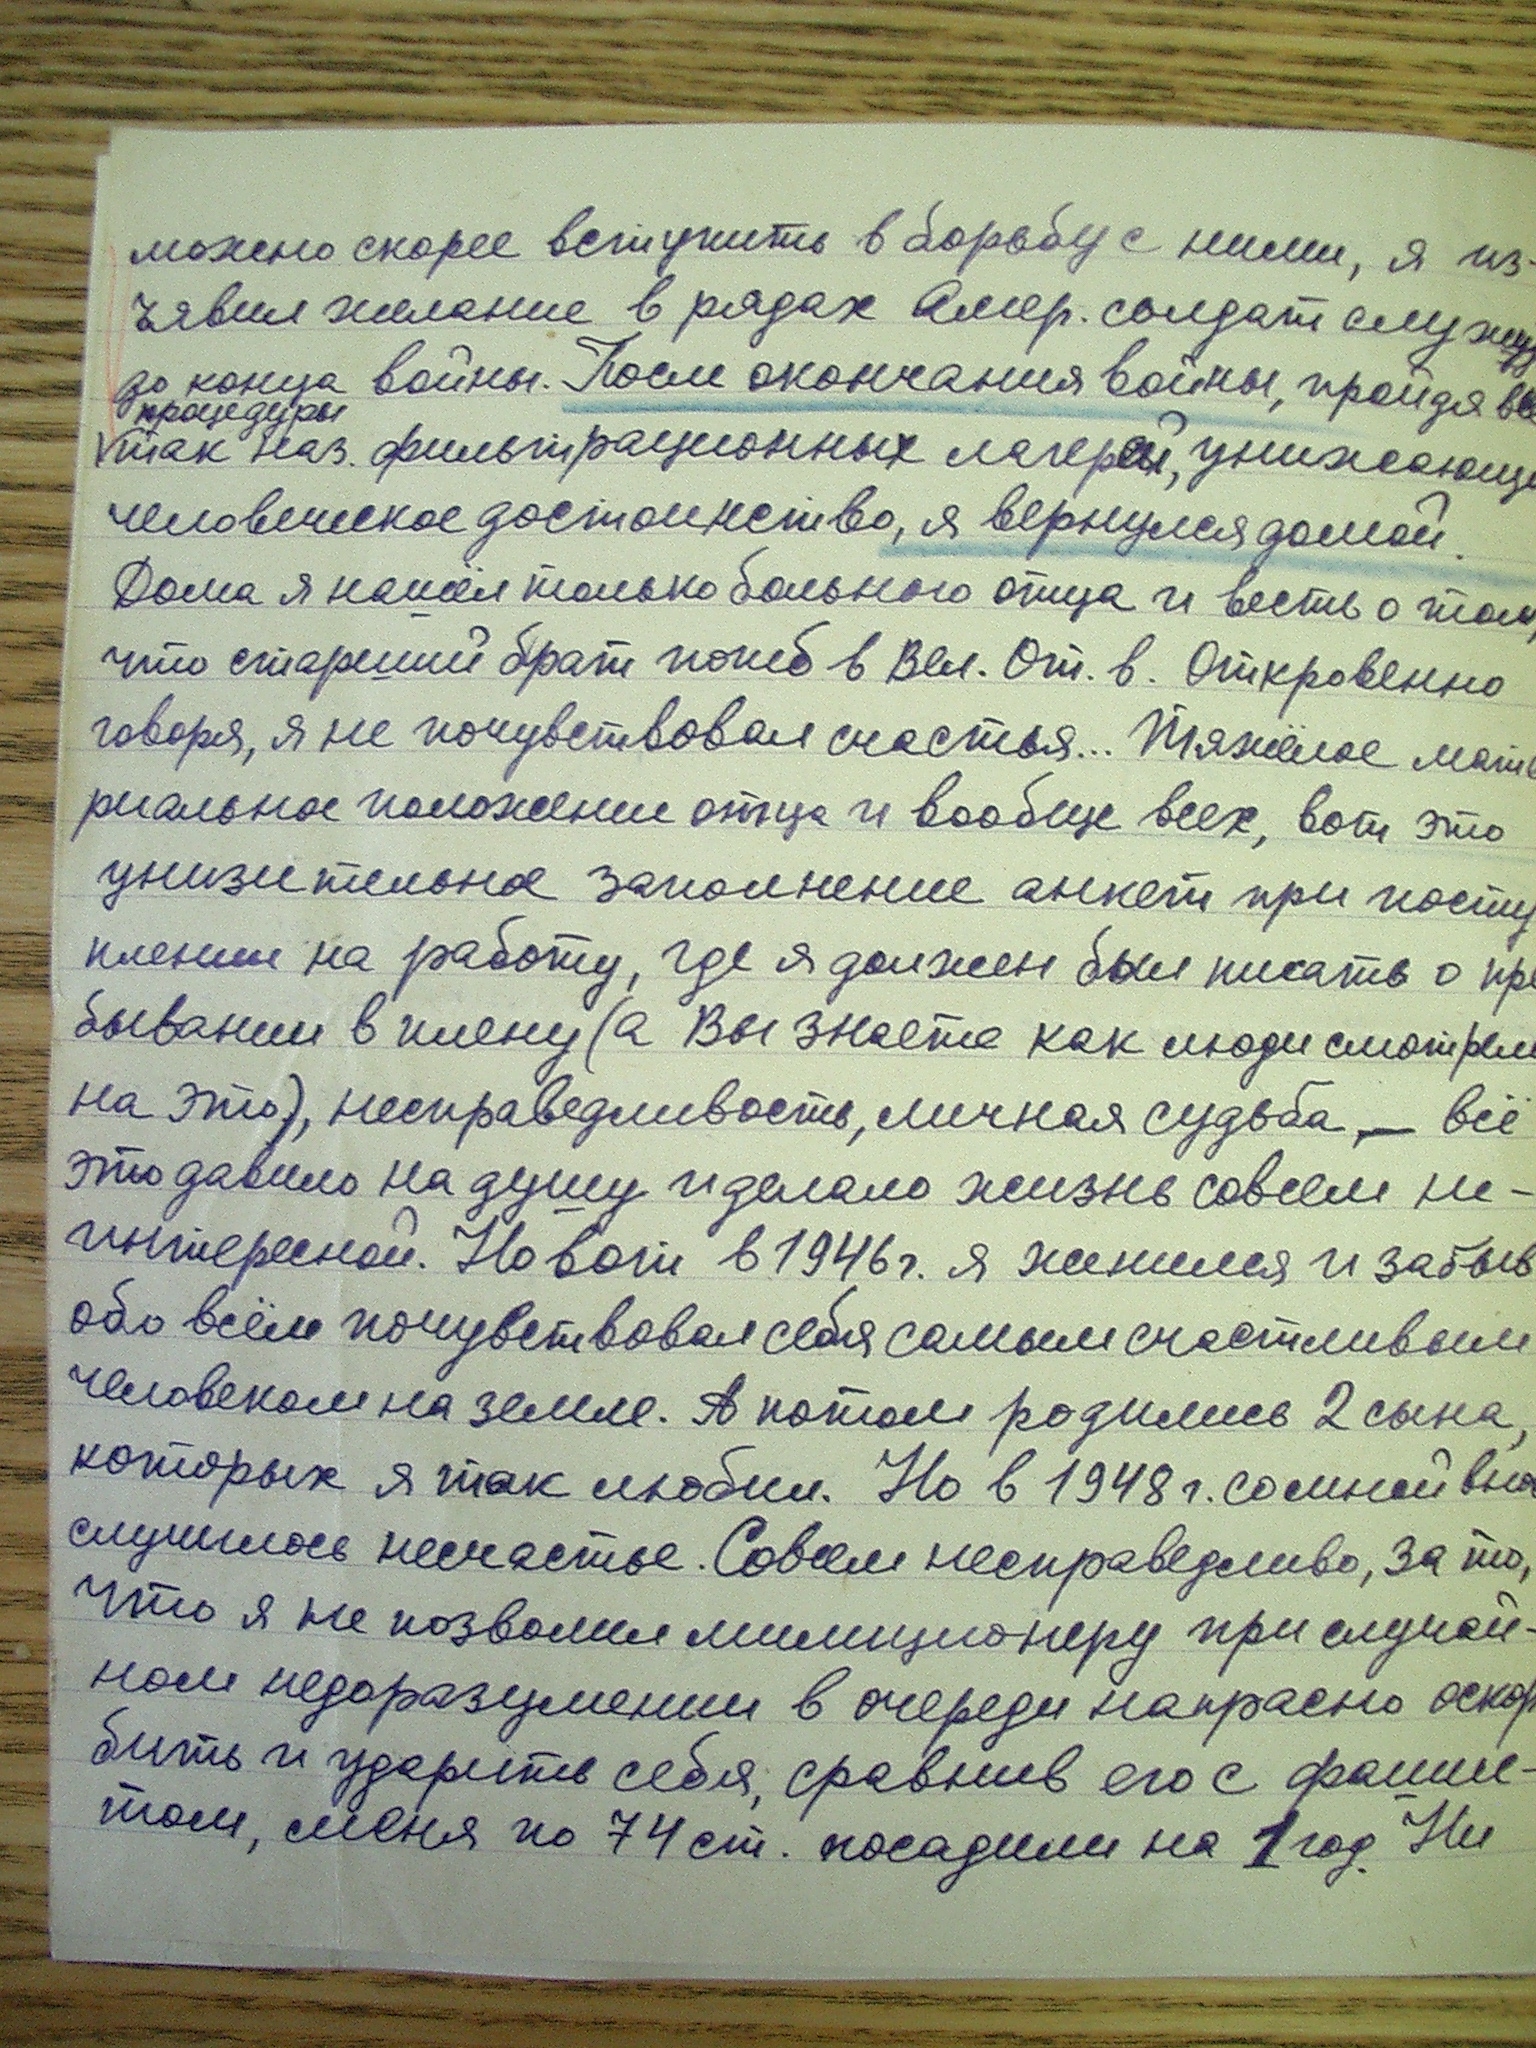 можно скорее вступить в борьбу с ними, я из-
ъявил желание в рядах Амер. солдат служу
до конца войны. После окончания войны, пройдя все
процедуры
так наз. фильтрационных лагерей, унижающи
человеческое достоинство, я вернулся домой.
Дома я нашёл только больного отца и весть о том,
что старший брат погиб в Вел. От. в. Откровенно
говоря, я не почувствовал счастья... Тяжёлое мате
риальное положение отца и вообще всех, вот это
унизительное заполнение анкет при посту
плении на работу, где я должен был писать о пре
бывании в плену (а Вы знаете как люди смотрели
на это), несправедливость, личная судьба, — всё
это давило на душу и делало жизнь совсем не-
интересной. Но вот в 1946 г. я женился и забыв
обо всём почувствовал себя самым счастливым
человеком на земле. А потом родились 2 сына,
которых я так любил. Но в 1948 г. со мной вно
случилось несчастье. Совсем несправедливо, за то,
что я не позволил милиционеру при случай-
ном недоразумении в очереди напрасно оскор
бить и ударить себя, сравнив его с фашис-
том, меня по 74 ст. посадили на 1 год. Ни